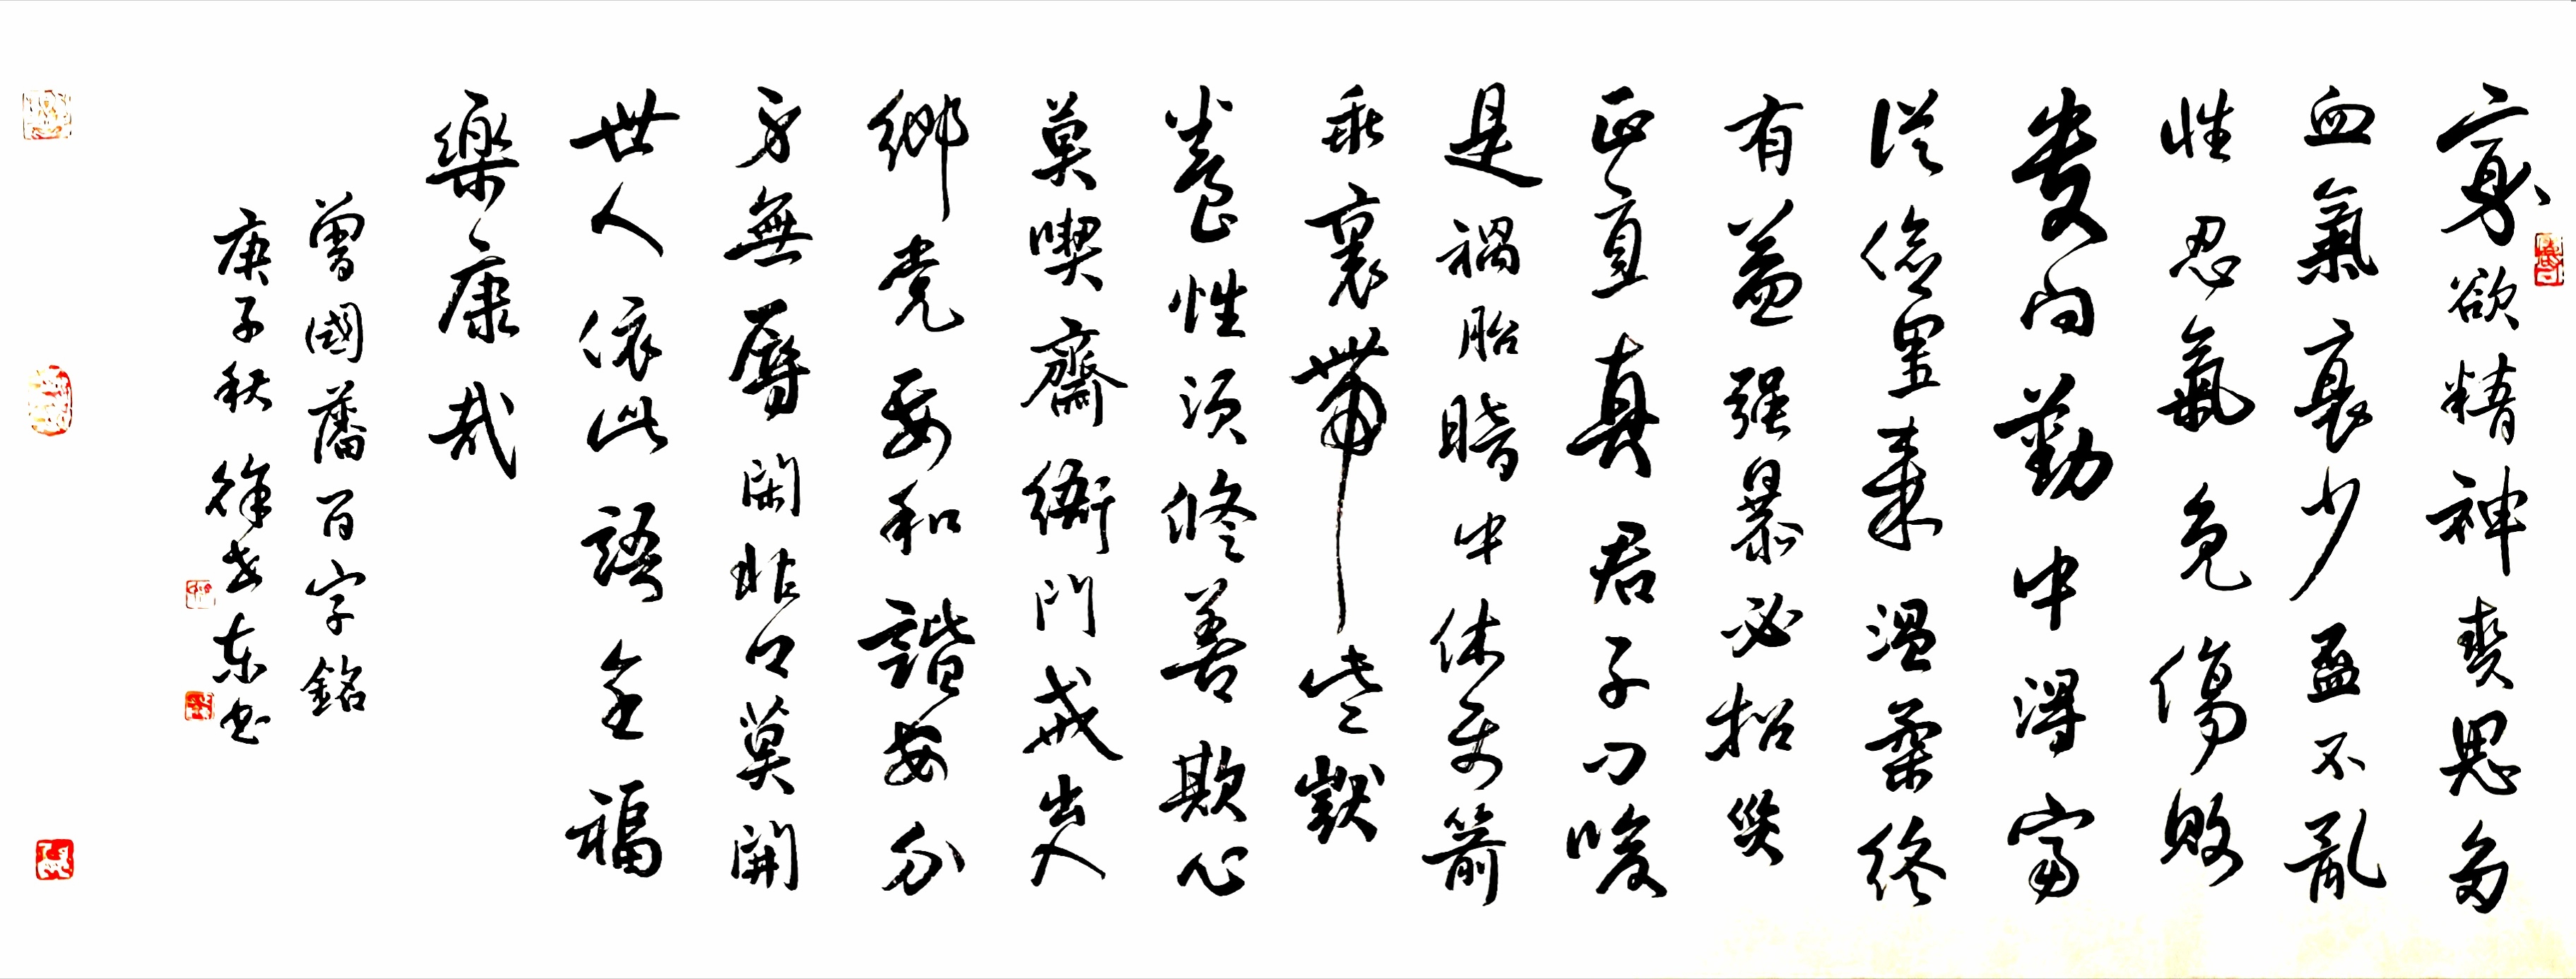 寡欲精神爽思多
血氣衰少盃不亂
性忍氣免傷敗
貴向勤中得富
從儉里來溫柔終
有益强暴必招災
正直真君子刁唆
是禍胎暗中休箭
乖裏帶些獃
養性須修善欺心
莫喫齋衙門戒出入
鄉党要和諧安分
身無辱閑非口莫開
世人依此語全福
樂康哉
曾國藩百字銘
庚子秋 徐东书